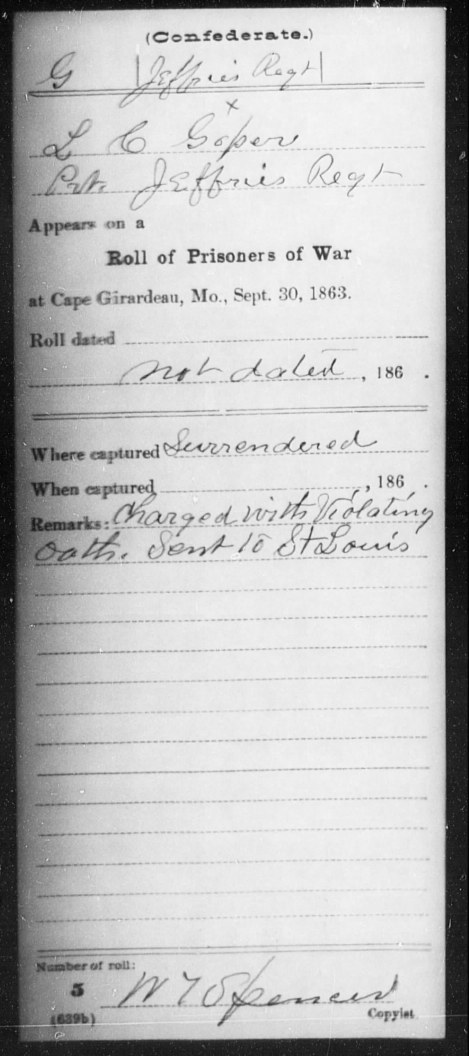 (Confederate.)
G | Jeffries Regt |
x
L C Goper
Pvt. Jeffries Regt
Appears on a
Roll of Prisoners of War
at Cape Girardeau, Mo., Sept. 30, 1863.
Roll dated
not dated, 186 .
Where captured Surrendered
When captured , 186 .
Remarks: Charged with Violating
Oath. Sent to St Louis
Number of roll:
5 W T Spencer
(639b) Copyist.